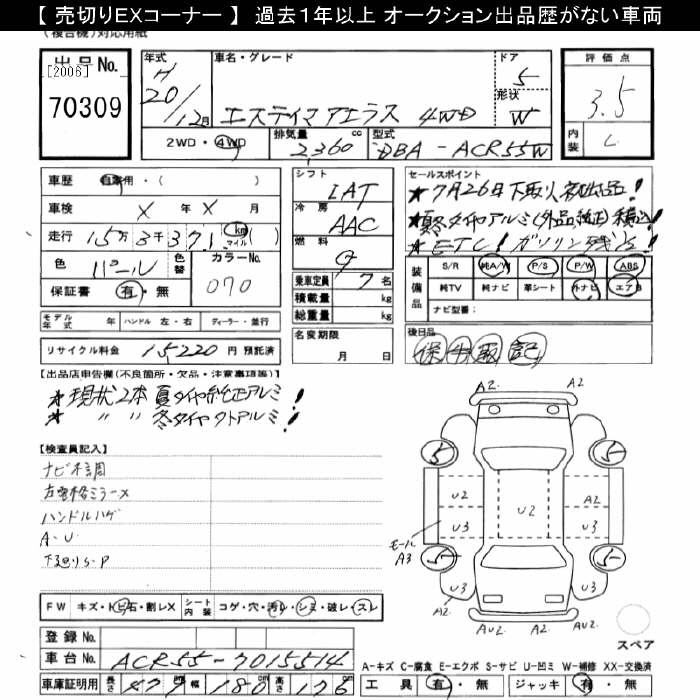 【 売切りEXコーナー 】 過去1年以上 オークション出品歴がない車両
(複合機)対応用紙
出品No. [2006] 70309
年式 H 20/12月
車名・グレード エスティマ アエラス 4WD
ドア 5
形状 W
評価点 3.5
内装 C
2WD・4WD
排気量 2,360 cc
型式 DBA-ACR55W
車歴 自家用・( )
車検 X 年 X 月
走行 15万3千371 km マイル ( )
色 パール
色替
カラーNo. 070
保証書 有・無
シフト IAT
冷房 AAC
燃料 G
乗車定員 7 名
積載量 kg
総重量 kg
名変期限 月 日
セールスポイント
★7月26日下取り初出品!
★ETC! ガソリン残
装備品 S/R 純A/W P/S P/W ABS
純TV 純ナビ 革シート 外ナビ エアB
ナビ型番:
後日品
保 手 取 記
モデル年式 年 ハンドル 左・右 ディーラー・並行
リサイクル料金 15220 円 預託済
【出品店申告欄(不良箇所・欠品・注意事項等)】
★現状2本 夏タイヤ純正アルミ!
★ 〃 〃 冬タイヤ アルミ!
【検査員記入】
ナビ不調
左電格ミラーX
ハンドルハゲ
A・U
下廻りS・P
FW キズ・トビ石・割レX シート内装 コゲ・穴・汚レ・シミ・破レ・スレ
登録No.
車台No. ACR55-7015514
車庫証明用 長さ 479 幅 180 高さ 176
A2
A2
5
5
U2
U2
A2
U3
U3
モールA3
5
5
U3
U3
A2
A2
AU2
AU2
スペア
A-キズ C-腐食 E-エクボ S-サビ U-凹ミ W-補修 XX-交換済
工具 有・無 ジャッキ 有・無